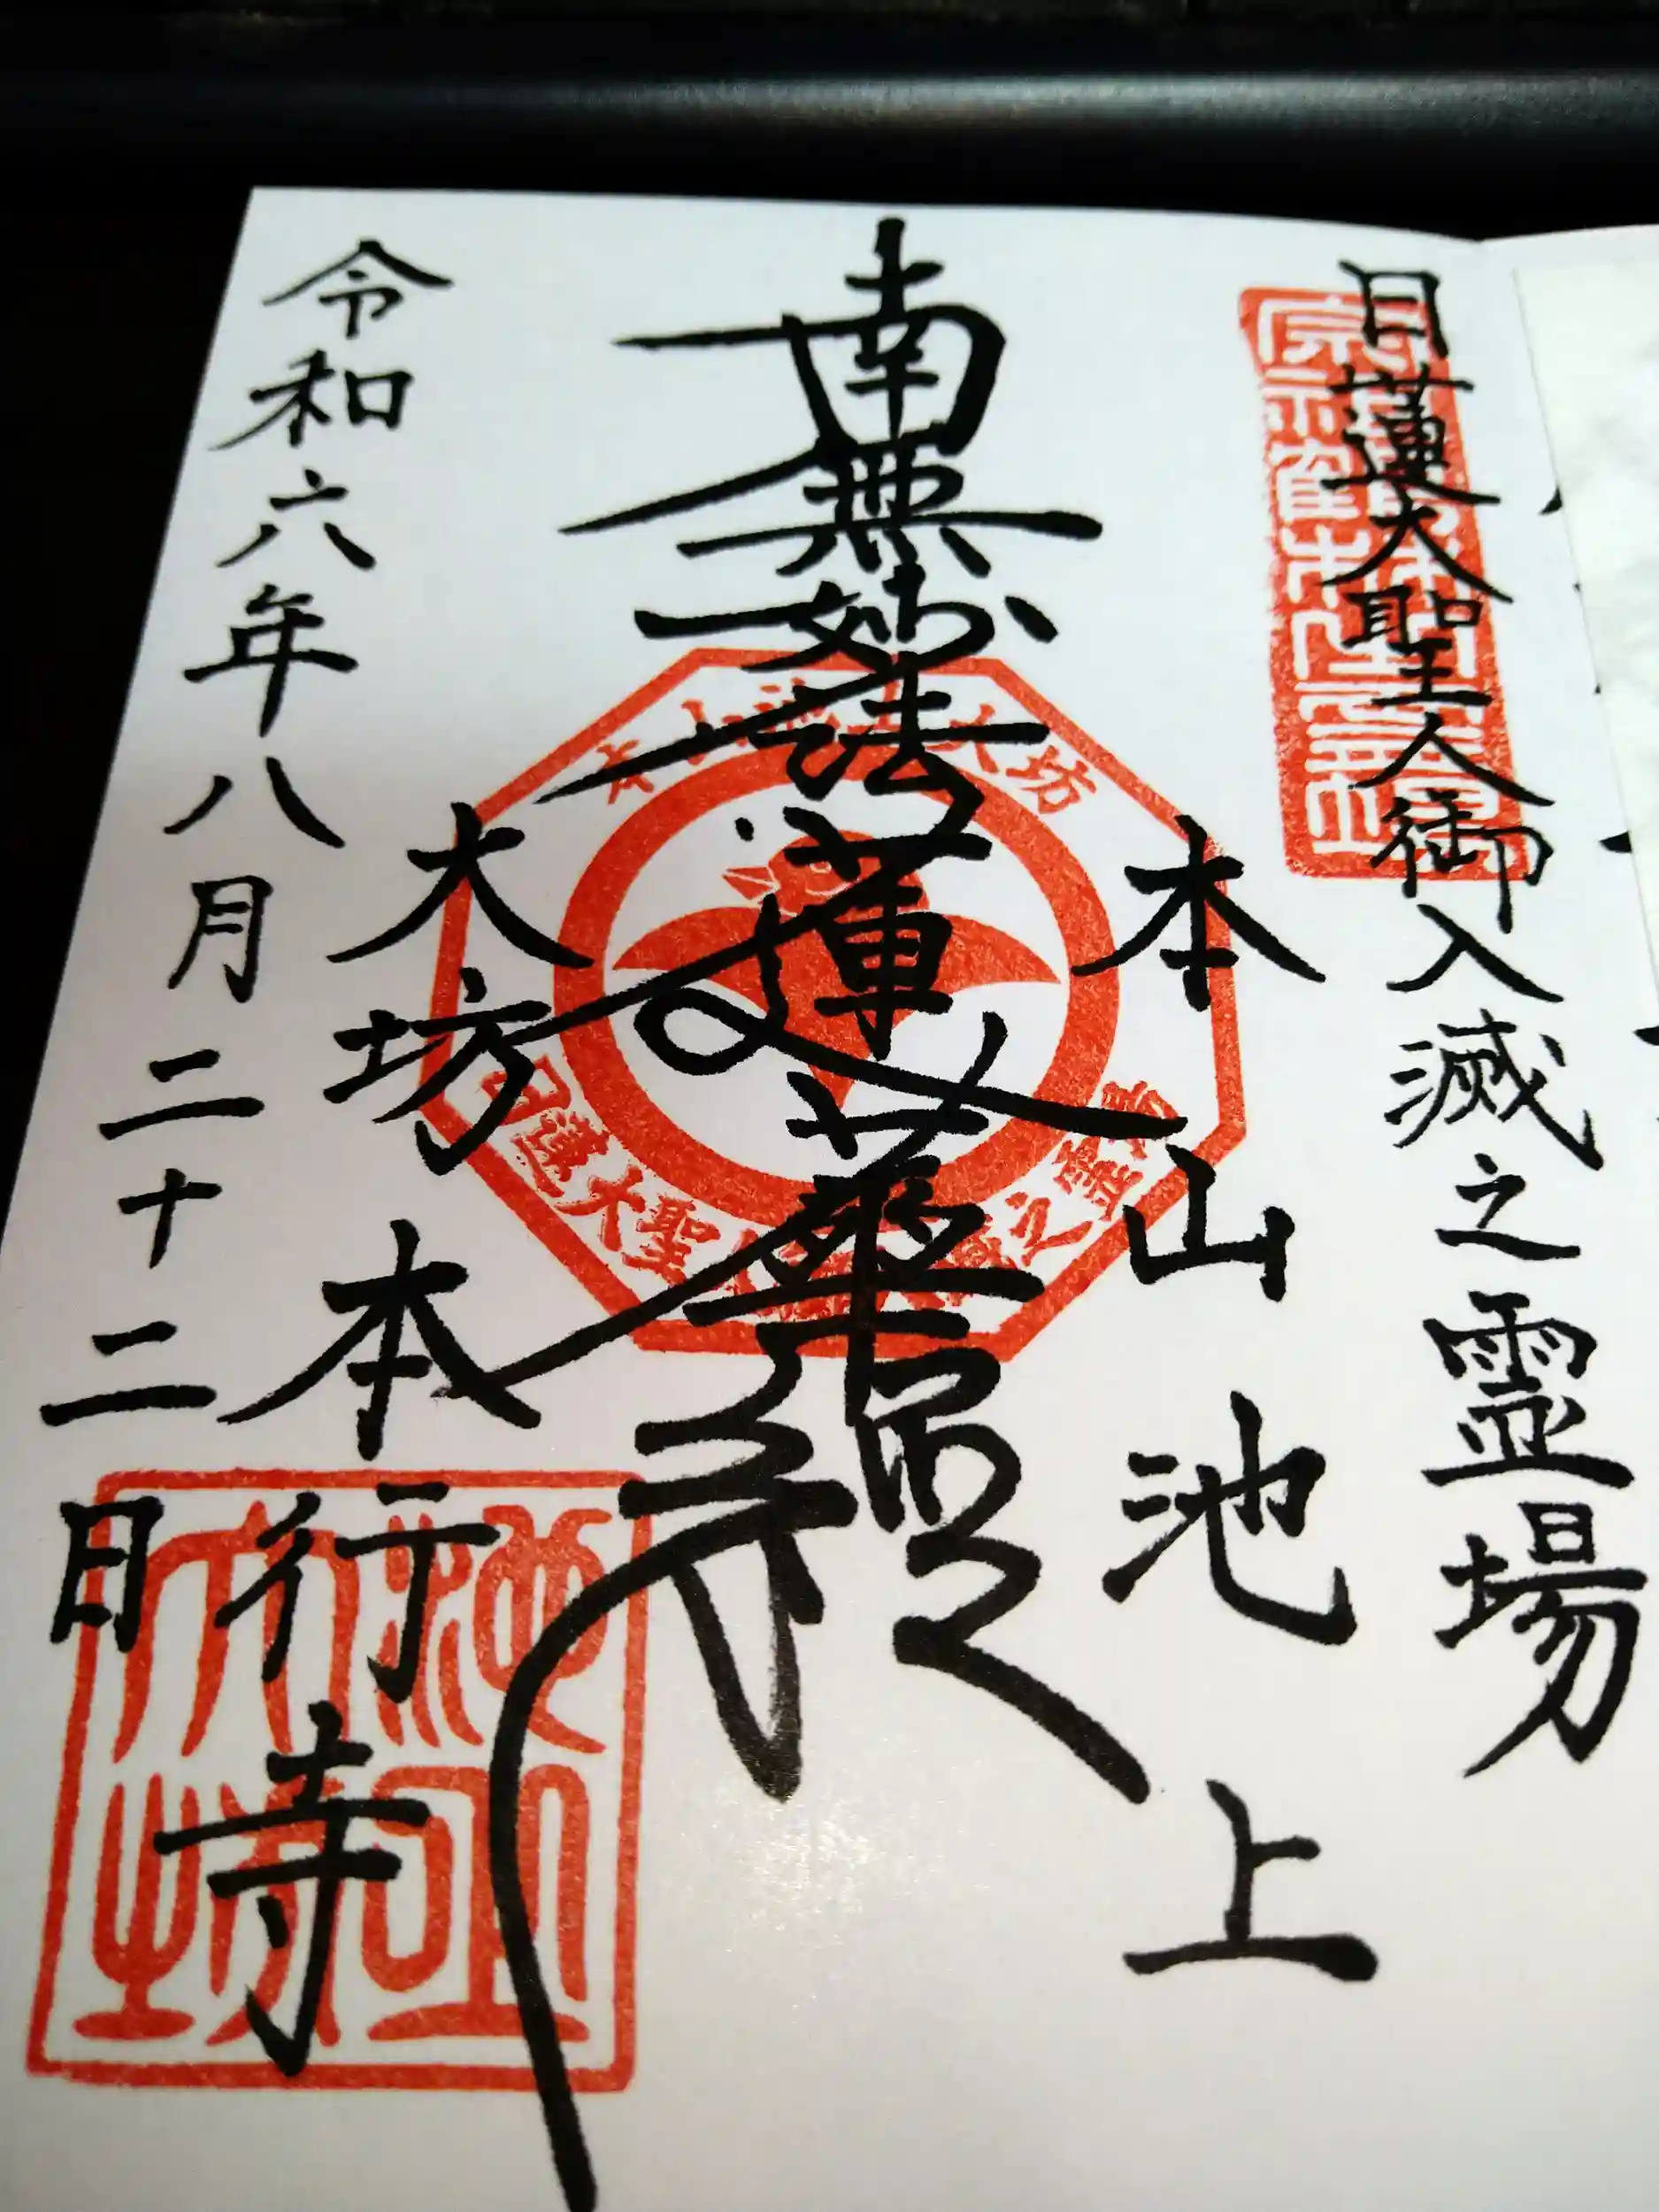 日蓮大聖人御入滅之霊場
本山池上
南無妙法蓮華経
大坊本行寺
令和六年八月二十二日
大坊
日蓮大聖人
之霊場
池上
大坊